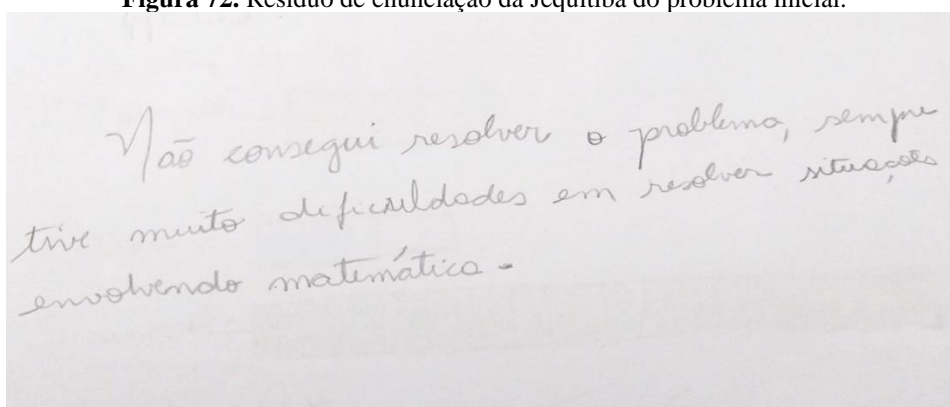 Figura 72. Resíduo de enunciação da Jequitibá do problema inicial.
Não consegui resolver o problema, sempre
tive muito dificuldades em resolver situações
envolvendo matemática.